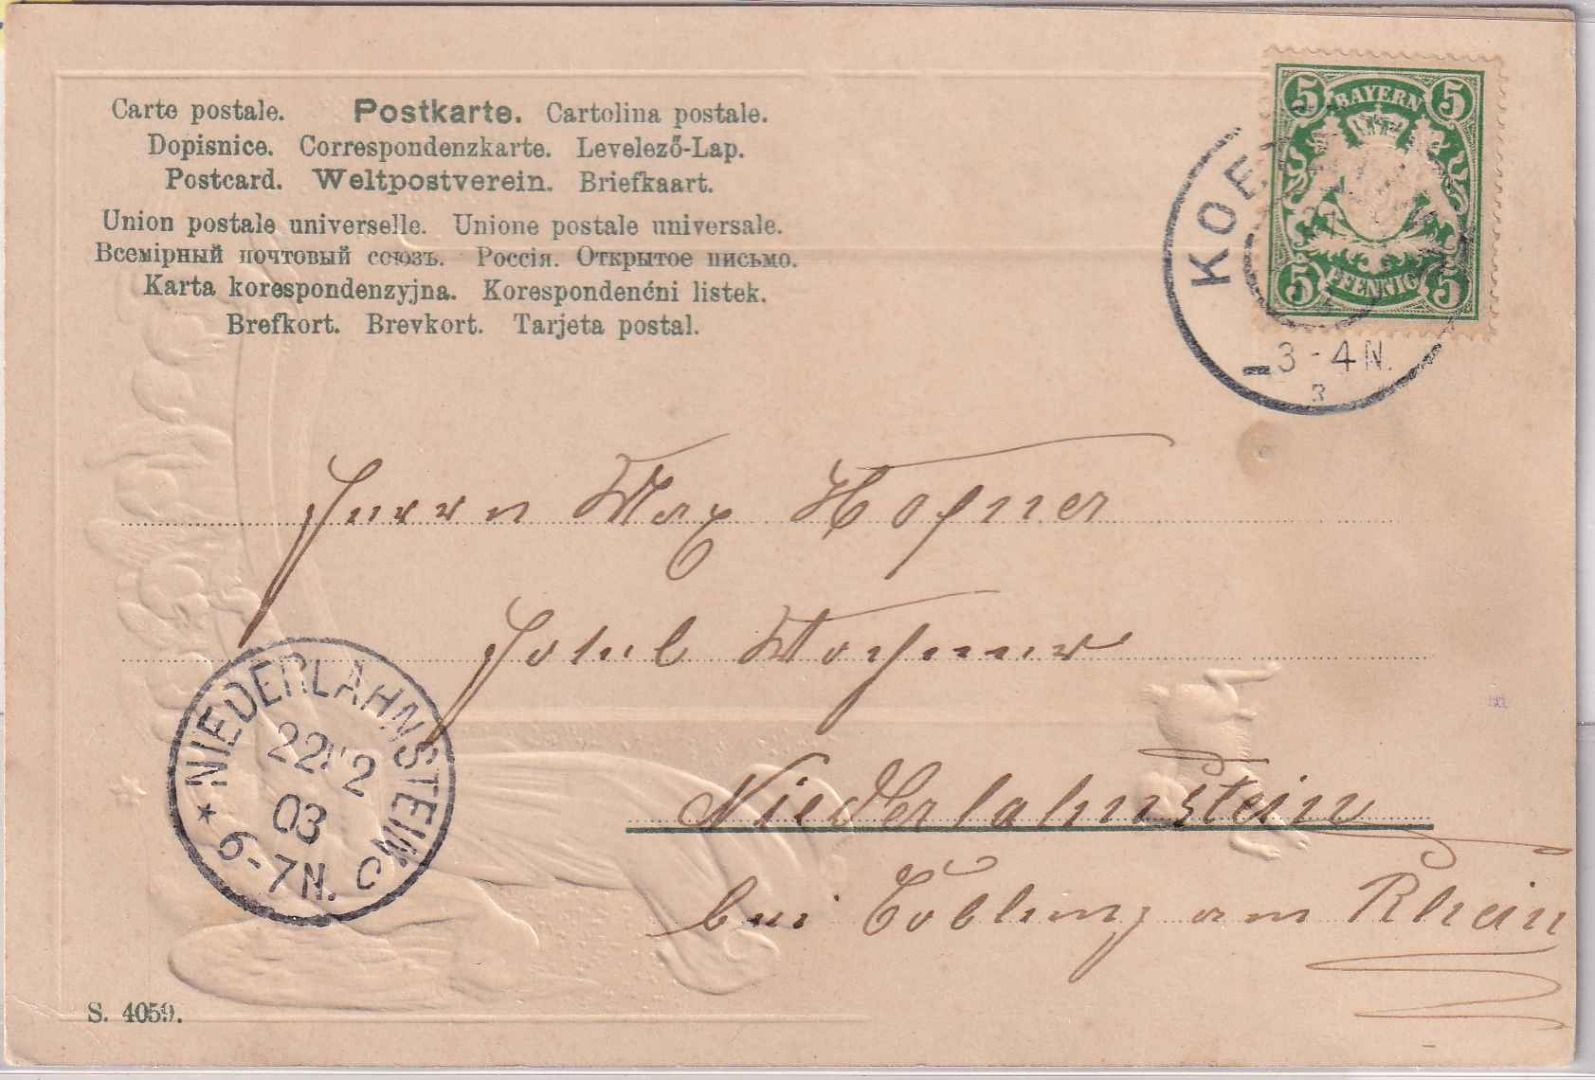 Carte postale. Postkarte. Cartolina postale.
Dopisnice. Correspondenzkarte. Levelező-Lap.
Postcard. Weltpostverein. Briefkaart.
Union postale universelle. Unione postale universale.
Всемірный почтовый союзъ. Россія. Открытое письмо.
Karta korespondenzyjna. Korespondenćni listek.
Brefkort. Brevkort. Tarjeta postal.
5 BAYERN 5
5 PFENNIG 5
KOE
3-4N.
Herrn Max Hofner
Hotel
Niederlahnstein
bei Coblenz am Rhein
NIEDERLAHNSTEIN
22 2
03
* 6-7N. c
S. 4059.